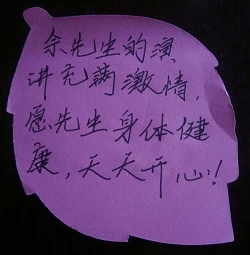 余先生的演
讲充满激情，
愿先生身体健
康，天天开心！